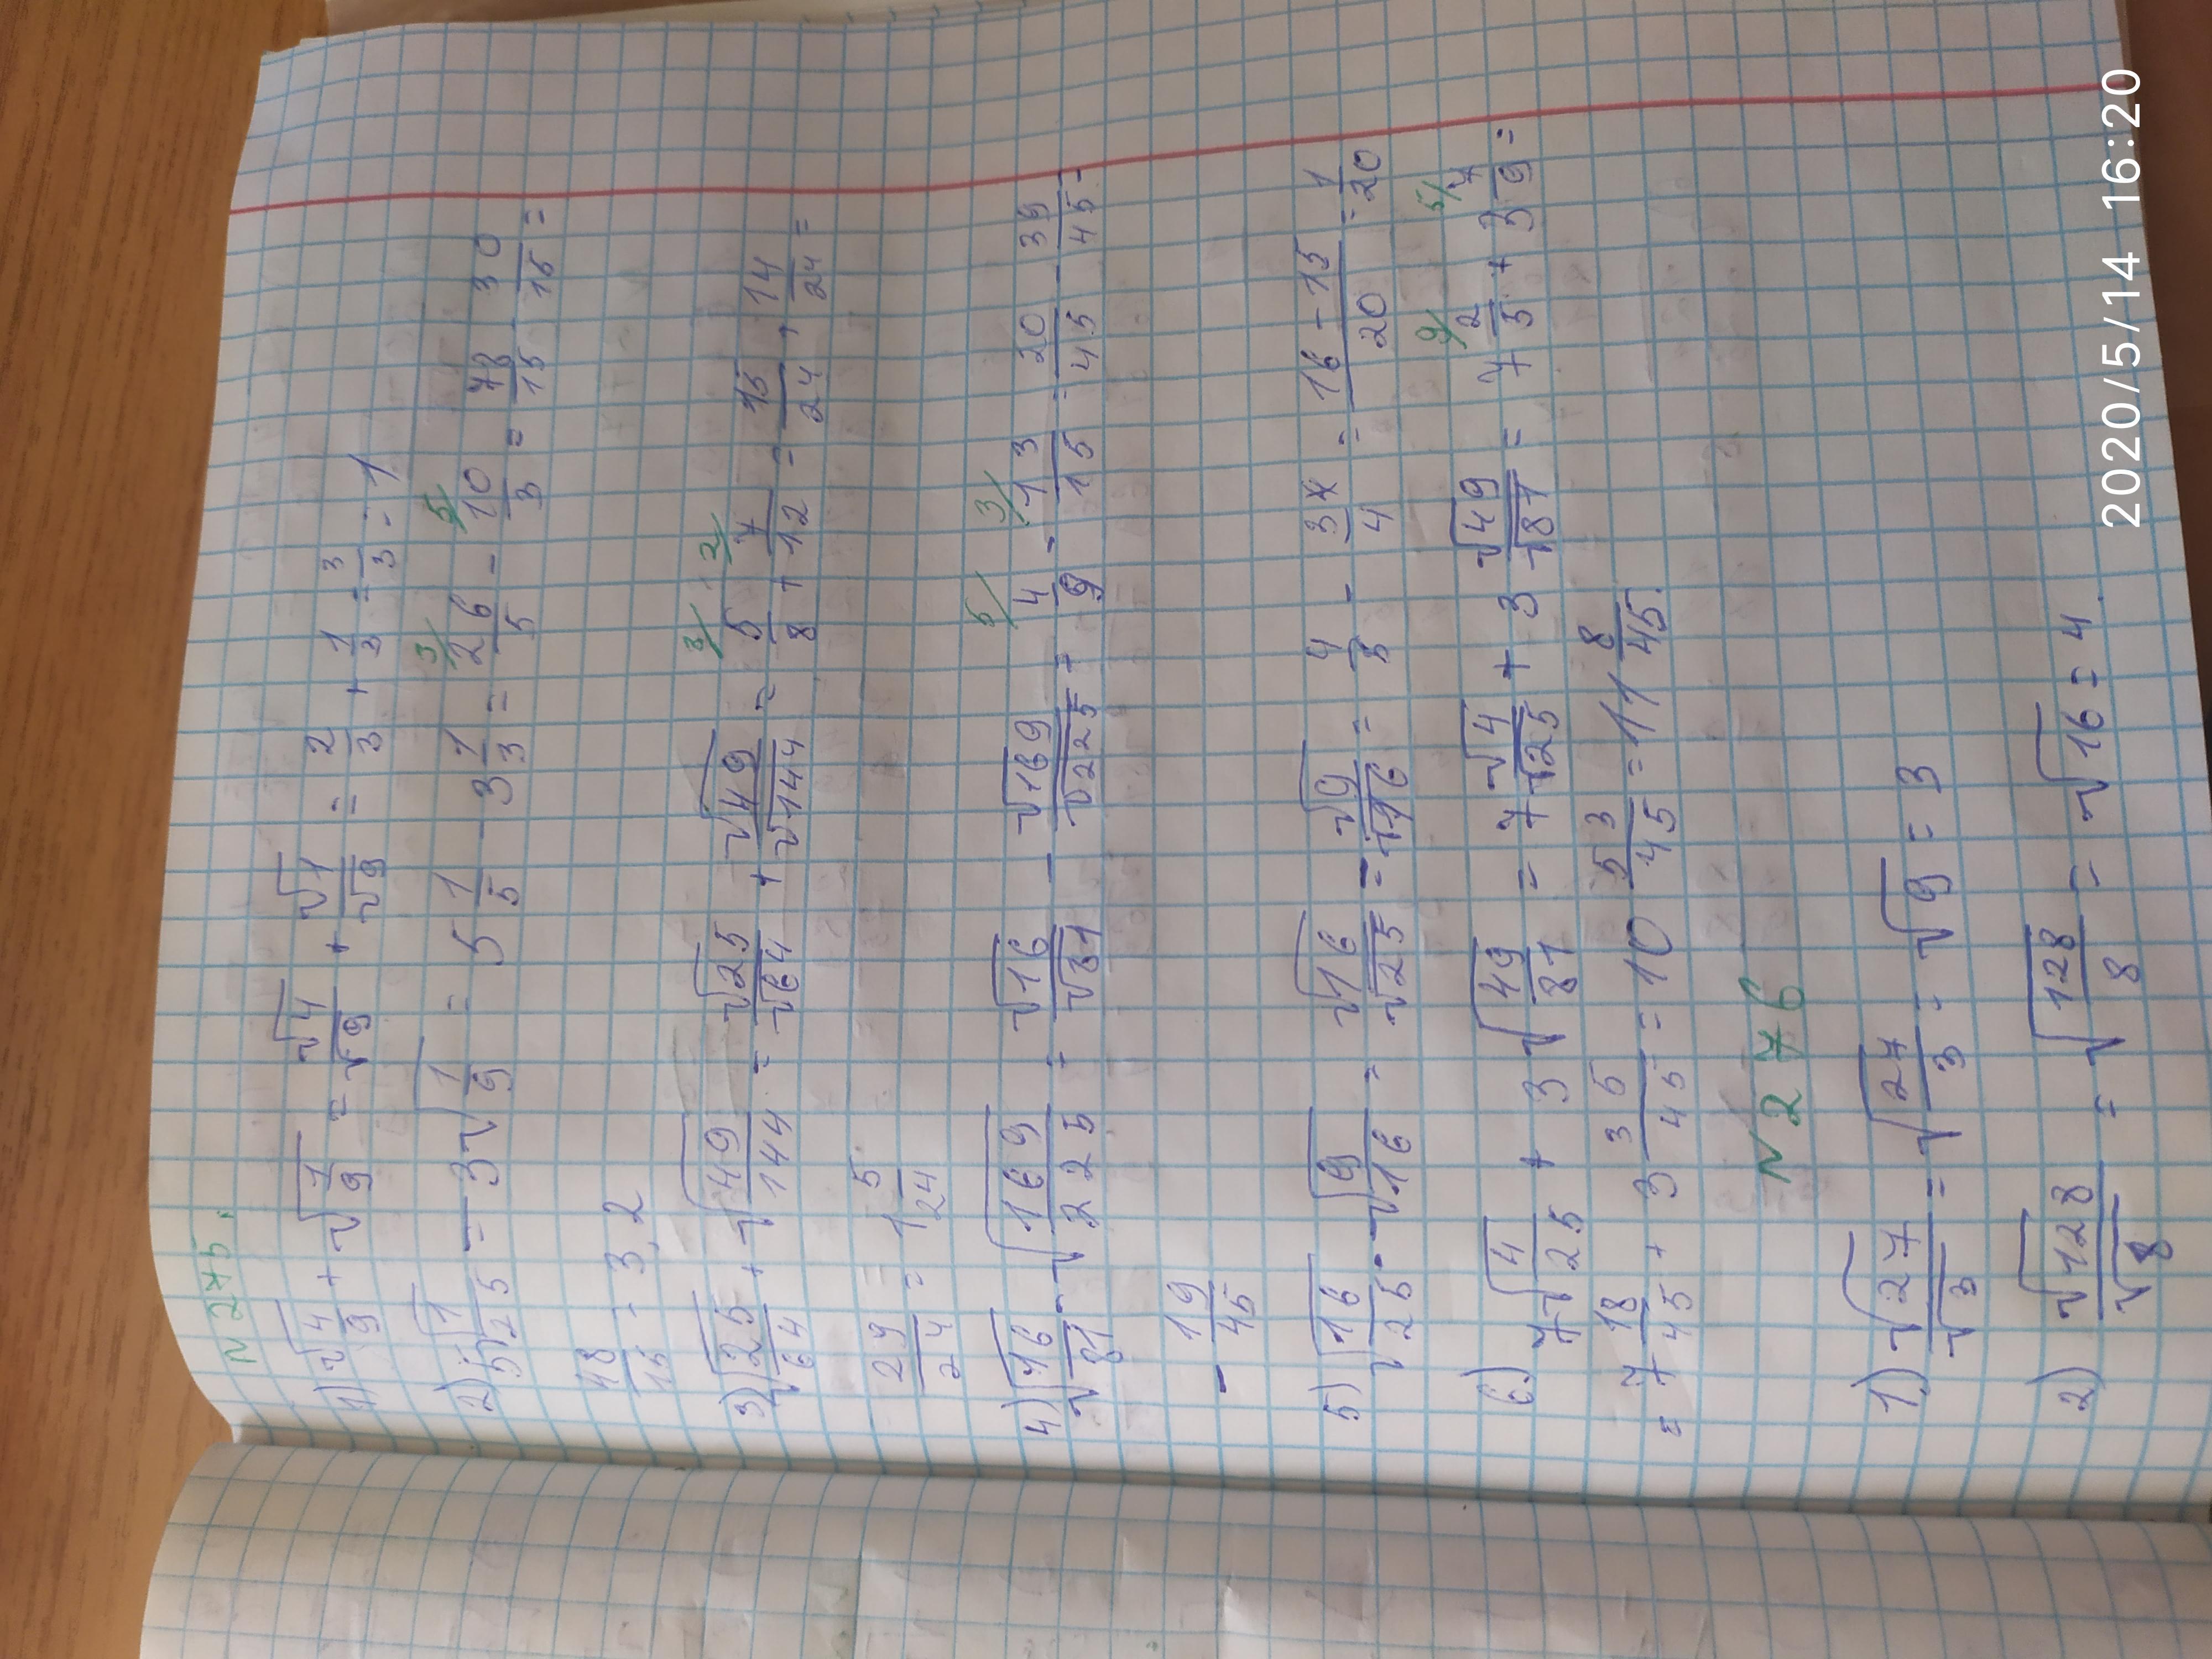 N 275.
1) √4/9 + √1/9 = √4/√9 + √1/√9 = 2/3 + 1/3 = 3/3 = 1
2) 5√1/25 - 3√1/9 = 5 1/5 - 3 1/3 = 3/ 26/5 - 5/ 10/3 = 78/15 - 30/15 =
48/15 = 3,2
3) √25/64 + √49/144 = √25/√64 + √49/√144 = 3/ 5/8 + 2/ 7/12 = 15/24 + 14/24 =
29/24 = 1 5/24
4) √16/81 - √169/225 = √16/√81 - √169/√225 = 5/ 4/9 - 3/ 13/15 = 20/45 - 39/45 =
- 19/45
5) √16/25 - √9/16 = √16/√25 = √9/√16 = 4/5 - 3/4 = 16-15/20 = 1/20
6) 7√4/25 + 3√49/81 = 7 √4/√25 + 3 √49/√81 = 9/ 7 2/5 + 5/ 3 7/9 =
= 7 18/45 + 3 35/45 = 10 53/45 = 11 8/45.
N 276
1.) √27/√3 = √27/3 = √9 = 3
2) √128/√8 = √128/8 = √16 = 4.
2020/5/14 16:20